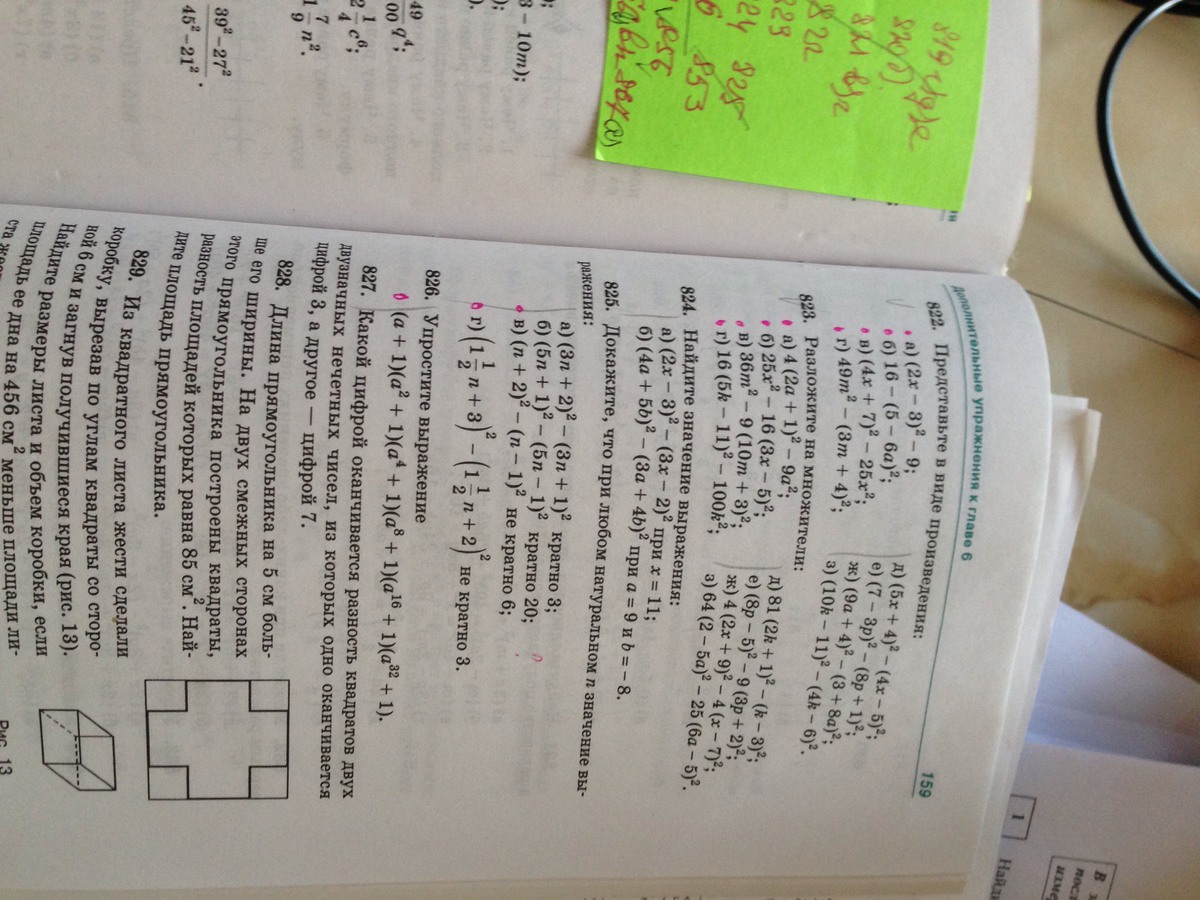 39² − 27²
45² − 21²
49
q⁴;
c⁶;
n².
3 − 10m);
820
821
822
823
824 825
853
дополнительные упражнения к главе 6 159
822. Представьте в виде произведения:
а) (2x − 3)² − 9; д) (5x + 4)² − (4x − 5)²;
б) 16 − (5 − 6a)²; е) (7 − 3p)² − (8p + 1)²;
в) (4x + 7)² − 25x²; ж) (9a + 4)² − (3 + 8a)²;
г) 49m² − (3m + 4)²; з) (10k − 11)² − (4k − 6)².
823. Разложите на множители:
а) 4 (2a + 1)² − 9a²; д) 81 (2k + 1)² − (k − 3)²;
б) 25x² − 16 (3x − 5)²; е) (8p − 5)² − 9 (3p + 2)²;
в) 36m² − 9 (10m + 3)²; ж) 4 (2x + 9)² − 4 (x − 7)²;
г) 16 (5k − 11)² − 100k²; з) 64 (2 − 5a)² − 25 (6a − 5)².
824. Найдите значение выражения:
а) (2x − 3)² − (3x − 2)² при x = 11;
б) (4a + 5b)² − (3a + 4b)² при a = 9 и b = − 8.
825. Докажите, что при любом натуральном n значение вы-
ражения:
а) (3n + 2)² − (3n + 1)² кратно 3;
б) (5n + 1)² − (5n − 1)² кратно 20;
в) (n + 2)² − (n − 1)² не кратно 6;
г) (1 1/2 n + 3)² − (1 1/2 n + 2)² не кратно 3.
826. Упростите выражение
(a + 1)(a² + 1)(a⁴ + 1)(a⁸ + 1)(a¹⁶ + 1)(a³² + 1).
827. Какой цифрой оканчивается разность квадратов двух
двузначных нечетных чисел, из которых одно оканчивается
цифрой 3, а другое — цифрой 7.
828. Длина прямоугольника на 5 см боль-
ше его ширины. На двух смежных сторонах
этого прямоугольника построены квадраты,
разность площадей которых равна 85 см². Най-
дите площадь прямоугольника.
829. Из квадратного листа жести сделали
коробку, вырезав по углам квадраты со сторо-
ной 6 см и загнув получившиеся края (рис. 13).
Найдите размеры листа и объем коробки, если
площадь ее дна на 456 см² меньше площади ли-
Рис. 13
1
Найд
В